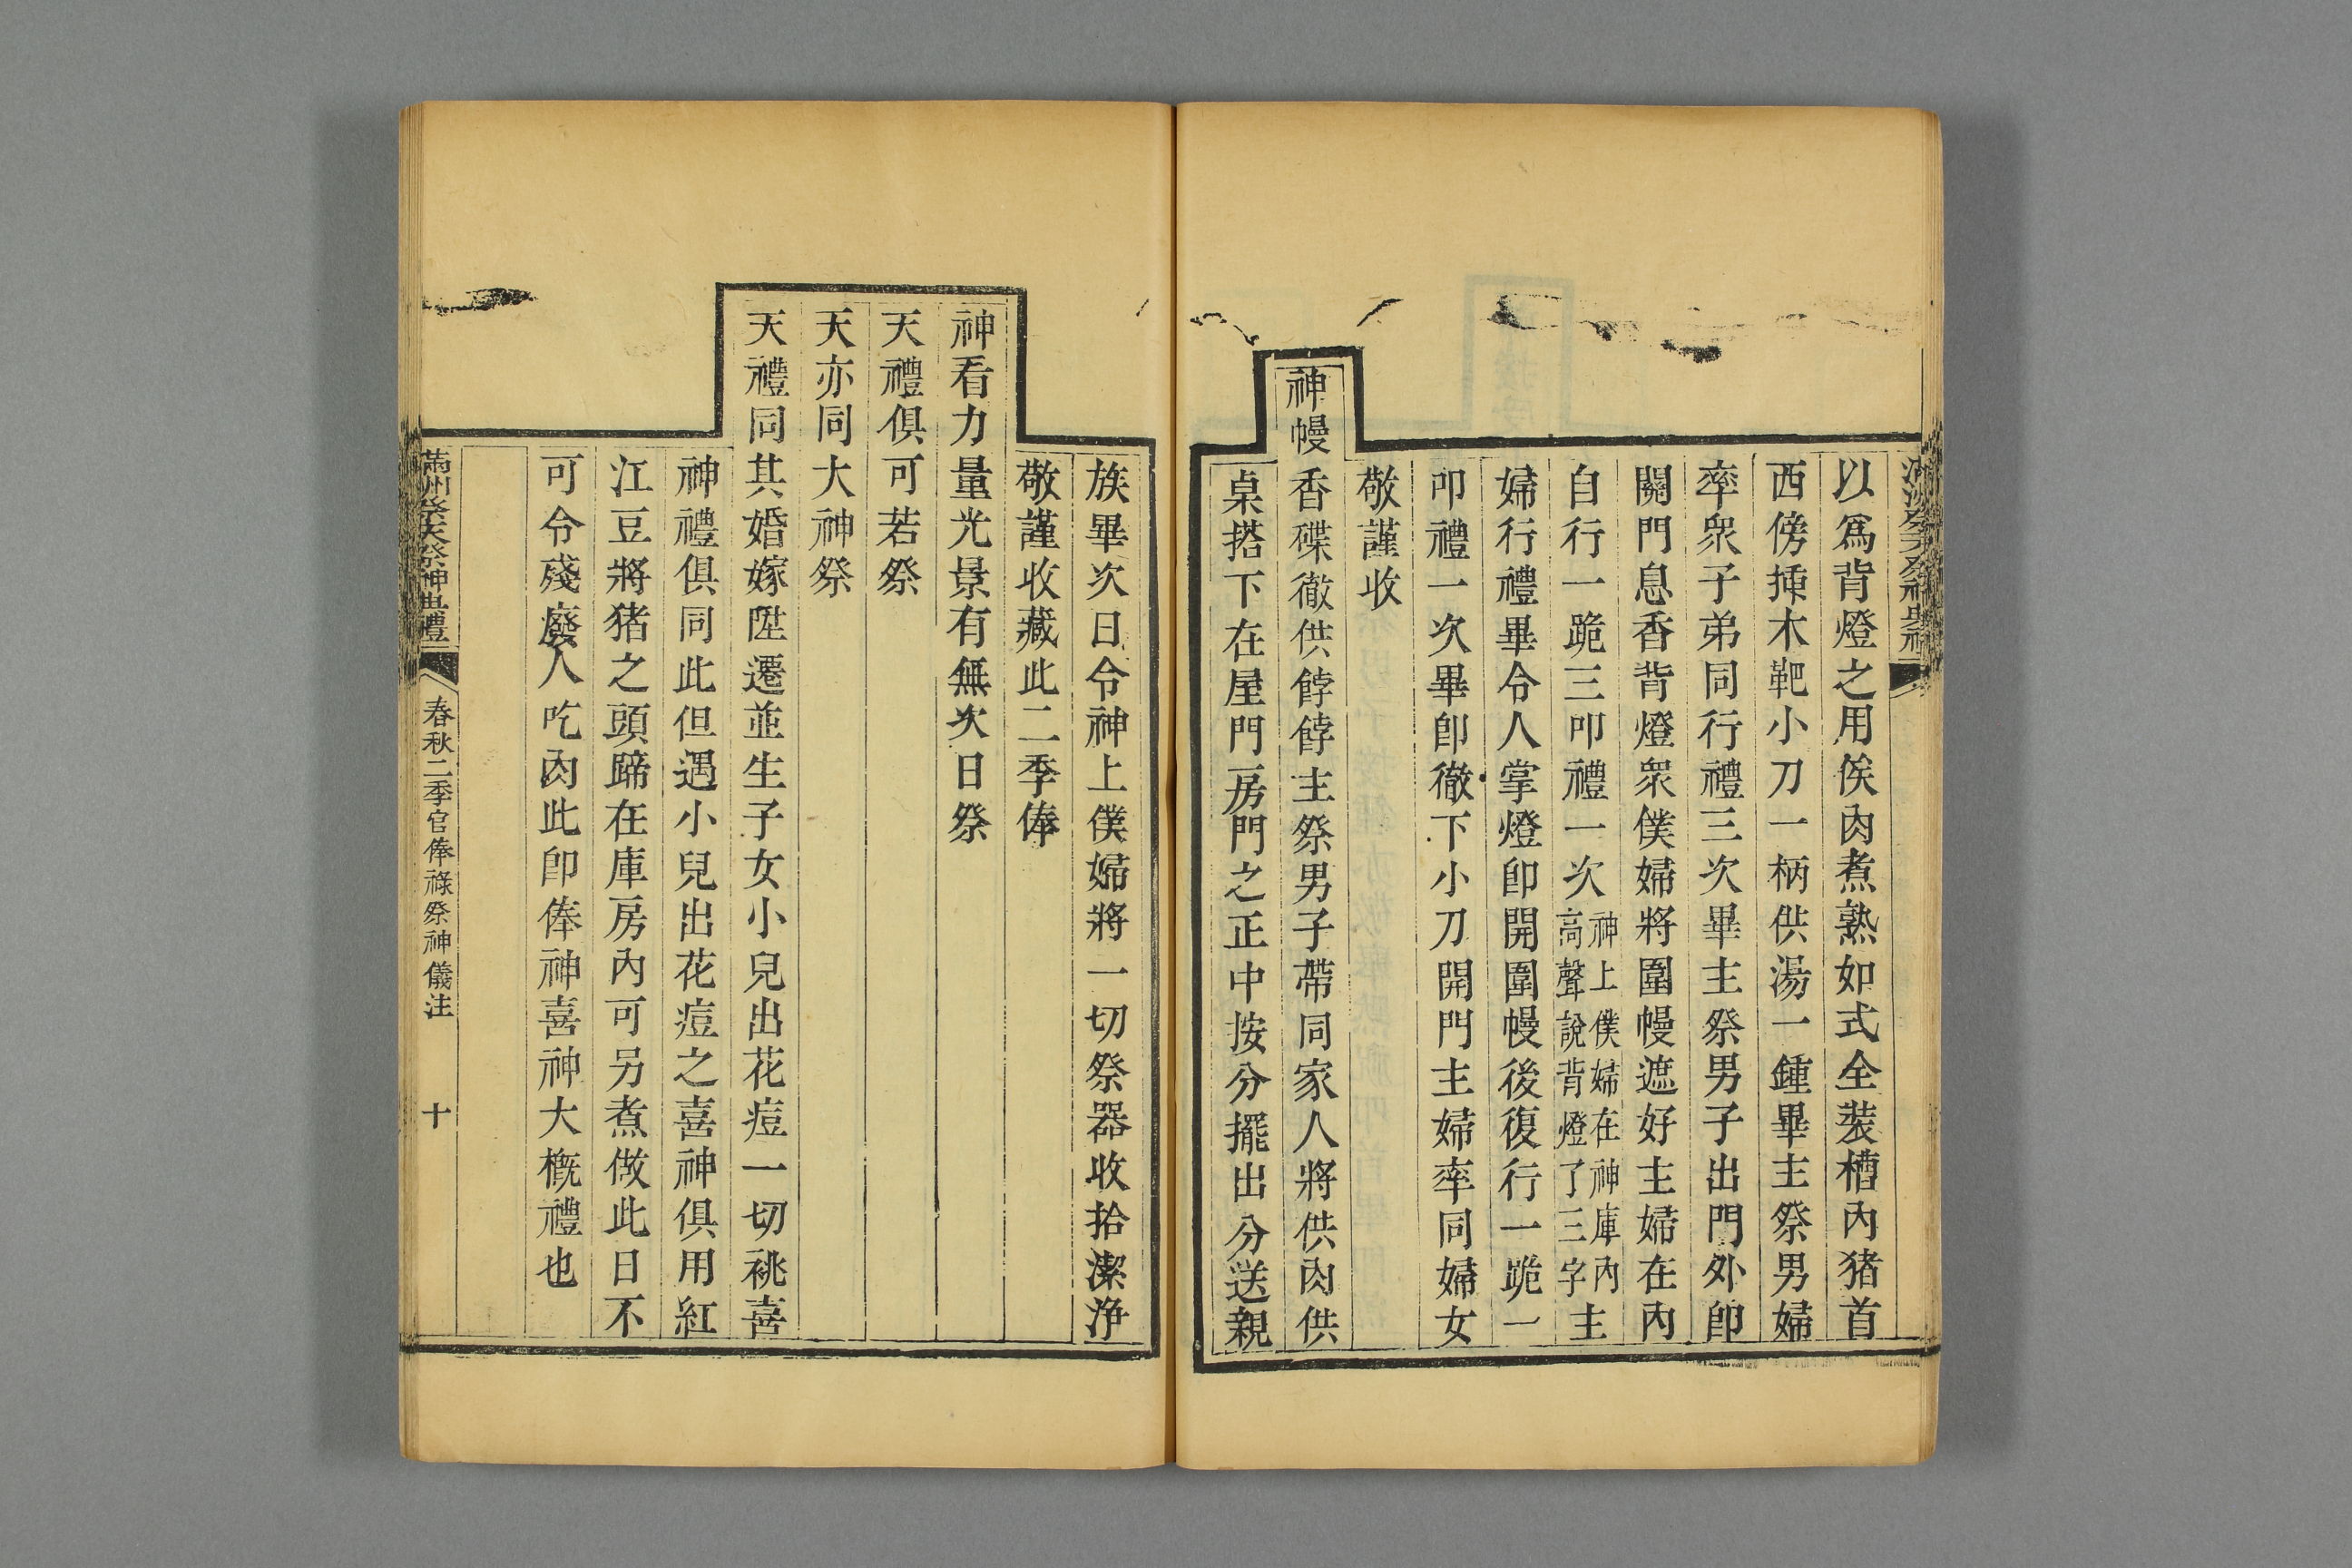 以爲背燈之用俟肉煮熟如式全裝槽內猪首
西傍揷木靶小刀一柄供湯一鍾畢主祭男婦
率衆子弟同行禮三次畢主祭男子出門外卽
關門息香背燈衆僕婦將圍幔遮好主婦在內
自行一跪三叩禮一次神上僕婦在神庫內高聲說背燈了三字主
婦行禮畢令人掌燈卽開圍幔後復行一跪一
叩禮一次畢卽徹下小刀開門主婦率同婦女
敬謹收
神幔香碟徹供餑餑主祭男子帶同家人將供肉供
桌搭下在屋門房門之正中按分擺出分送親
族畢次日令神上僕婦將一切祭器收拾潔淨
敬謹收藏此二季俸
神看力量光景有無次日祭
天禮俱可若祭
天亦同大神祭
天禮同其婚嫁陞遷並生子女小兒出花痘一切祧喜
神禮俱同此但遇小兒出花痘之喜神俱用紅
江豆將猪之頭蹄在庫房內可另煮做此日不
可令殘廢人吃肉此卽俸神喜神大槪禮也
滿州祭天祭神典禮 春秋二季官俸祿祭神儀注 十